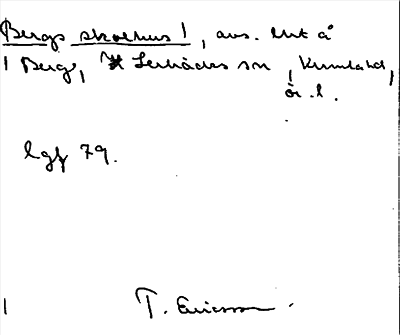 Bergs skolhus 1, avs. litt å
1 Berg, Lerbäcks sn, Kumla hd,
ör. l.
lgf 79.
T. Ericsson.